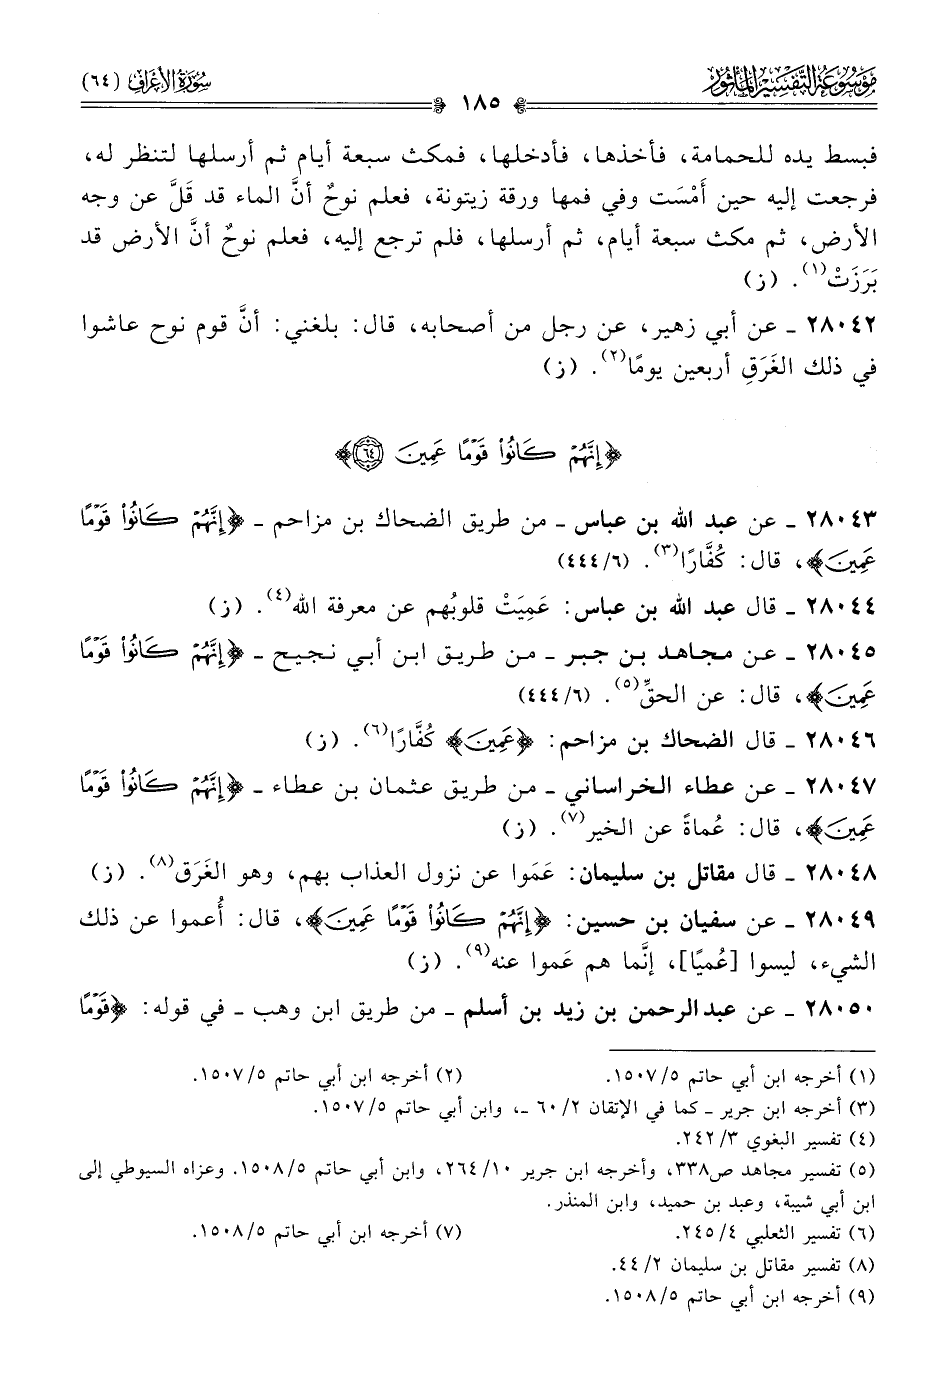 مَوْسُوعَةُ التَّفْسِيرِ المَأْثُور
سُورَةُ الأَعْرَافِ (٦٤)
١٨٥
فبسط يده للحمامة، فأخذها، فأدخلها، فمكث سبعة أيام ثم أرسلها لتنظر له،
فرجعت إليه حين أَمْسَت وفي فمها ورقة زيتونة، فعلم نوحٌ أنَّ الماء قد قَلَّ عن وجه
الأرض، ثم مكث سبعة أيام، ثم أرسلها، فلم ترجع إليه، فعلم نوحٌ أنَّ الأرض قد
بَرَزَتْ(١). (ز)
٢٨٠٤٢ ـ عن أبي زهير، عن رجل من أصحابه، قال: بلغني: أنَّ قوم نوح عاشوا
في ذلك الغَرَقِ أربعين يومًا(٢). (ز)
﴿إِنَّهُمْ كَانُوا۟ قَوْمًا عَمِينَ ٦٤﴾
٢٨٠٤٣ ـ عن عبد الله بن عباس ـ من طريق الضحاك بن مزاحم ـ ﴿إِنَّهُمْ كَانُوا۟ قَوْمًا
عَمِينَ﴾، قال: كُفَّارًا(٣). (٤٤٤/٦)
٢٨٠٤٤ ـ قال عبد الله بن عباس: عَمِيَتْ قلوبُهم عن معرفة الله(٤). (ز)
٢٨٠٤٥ ـ عن مجاهد بن جبر ـ من طريق ابن أبي نجيح ـ ﴿إِنَّهُمْ كَانُوا۟ قَوْمًا
عَمِينَ﴾، قال: عن الحقِّ(٥). (٤٤٤/٦)
٢٨٠٤٦ ـ قال الضحاك بن مزاحم: ﴿عَمِينَ﴾ كُفَّارًا(٦). (ز)
٢٨٠٤٧ ـ عن عطاء الخراساني ـ من طريق عثمان بن عطاء ـ ﴿إِنَّهُمْ كَانُوا۟ قَوْمًا
عَمِينَ﴾، قال: عُماةً عن الخير(٧). (ز)
٢٨٠٤٨ ـ قال مقاتل بن سليمان: عَمَوا عن نزول العذاب بهم، وهو الغَرَق(٨). (ز)
٢٨٠٤٩ ـ عن سفيان بن حسين: ﴿إِنَّهُمْ كَانُوا۟ قَوْمًا عَمِينَ﴾، قال: أُعموا عن ذلك
الشيء، ليسوا [عُميًا]، إنَّما هم عَموا عنه(٩). (ز)
٢٨٠٥٠ ـ عن عبدالرحمن بن زيد بن أسلم ـ من طريق ابن وهب ـ في قوله: ﴿قَوْمًا
(١) أخرجه ابن أبي حاتم ١٥٠٧/٥. (٢) أخرجه ابن أبي حاتم ١٥٠٧/٥.
(٣) أخرجه ابن جرير ـ كما في الإتقان ٦٠/٢ ـ، وابن أبي حاتم ١٥٠٧/٥.
(٤) تفسير البغوي ٢٤٢/٣.
(٥) تفسير مجاهد ص٣٣٨، وأخرجه ابن جرير ٢٦٤/١٠، وابن أبي حاتم ١٥٠٨/٥. وعزاه السيوطي إلى
ابن أبي شيبة، وعبد بن حميد، وابن المنذر.
(٦) تفسير الثعلبي ٢٤٥/٤. (٧) أخرجه ابن أبي حاتم ١٥٠٨/٥.
(٨) تفسير مقاتل بن سليمان ٤٤/٢.
(٩) أخرجه ابن أبي حاتم ١٥٠٨/٥.